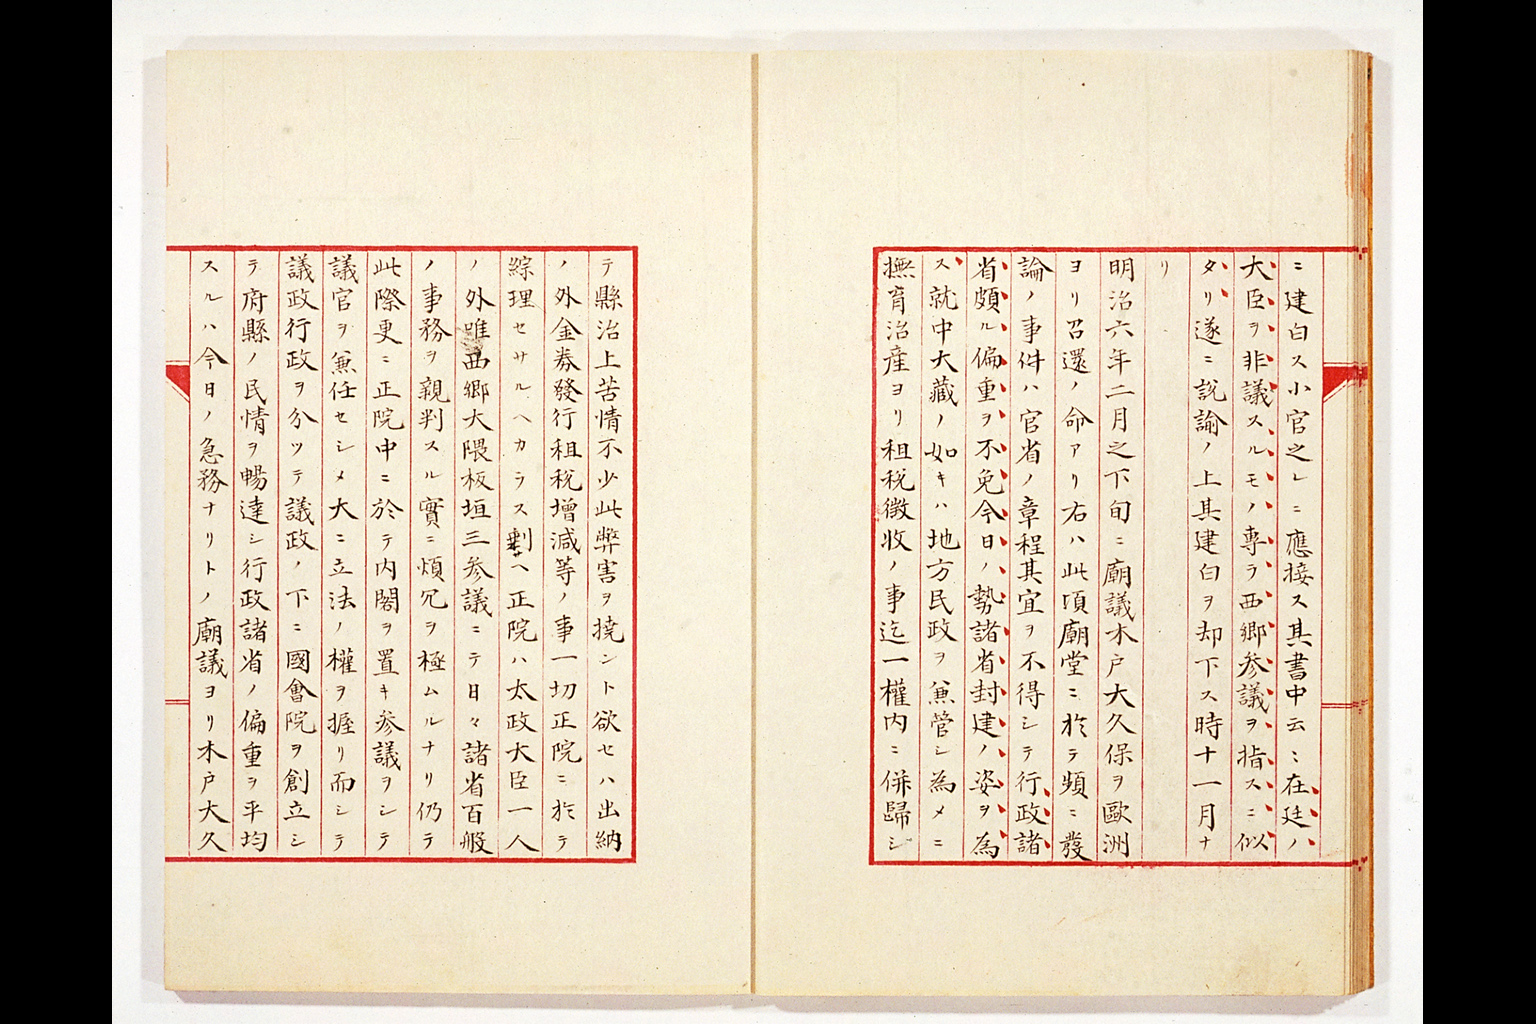 ニ建白ス小官之レニ應接ス其書中云ニ在廷ノ
大臣ヲ非議スルモノ專ラ西郷参議ヲ指スニ似
タリ遂ニ説諭ノ上其建白ヲ却下ス時十一月ナ
リ
明治六年二月之下旬ニ廟議木戸大久保ヲ歐洲
ヨリ召還ノ命アリ右ハ此頃廟堂ニ於テ頻ニ發
論ノ事件ハ官省ノ章程其宜ヲ不得シテ行政諸
省頗ル偏重ヲ不免今日ノ勢諸省封建ノ姿ヲ為
ス就中大藏ノ如キハ地方民政ヲ兼管シ為メニ
撫育治産ヨリ租税徴收ノ事迄一權内ニ併歸シ
テ縣治上苦情不少此弊害ヲ撓ント欲セハ出納
ノ外金券發行租税增減等ノ事一切正院ニ於テ
綜理セサルヘカラス剰ヘ正院ハ太政大臣一人
ノ外唯西郷大隈板垣三参議ニテ日々諸省百般
ノ事務ヲ親判スル實ニ煩冗ヲ極ムルナリ仍テ
此際更ニ正院中ニ於テ内閣ヲ置キ参議ヲシテ
議官ヲ兼任セシメ大ニ立法ノ權ヲ握リ而シテ
議政行政ヲ分ツテ議政ノ下ニ國會院ヲ創立シ
テ府縣ノ民情ヲ暢達シ行政諸省ノ偏重ヲ平均
スルハ今日ノ急務ナリトノ廟議ヨリ木戸大久